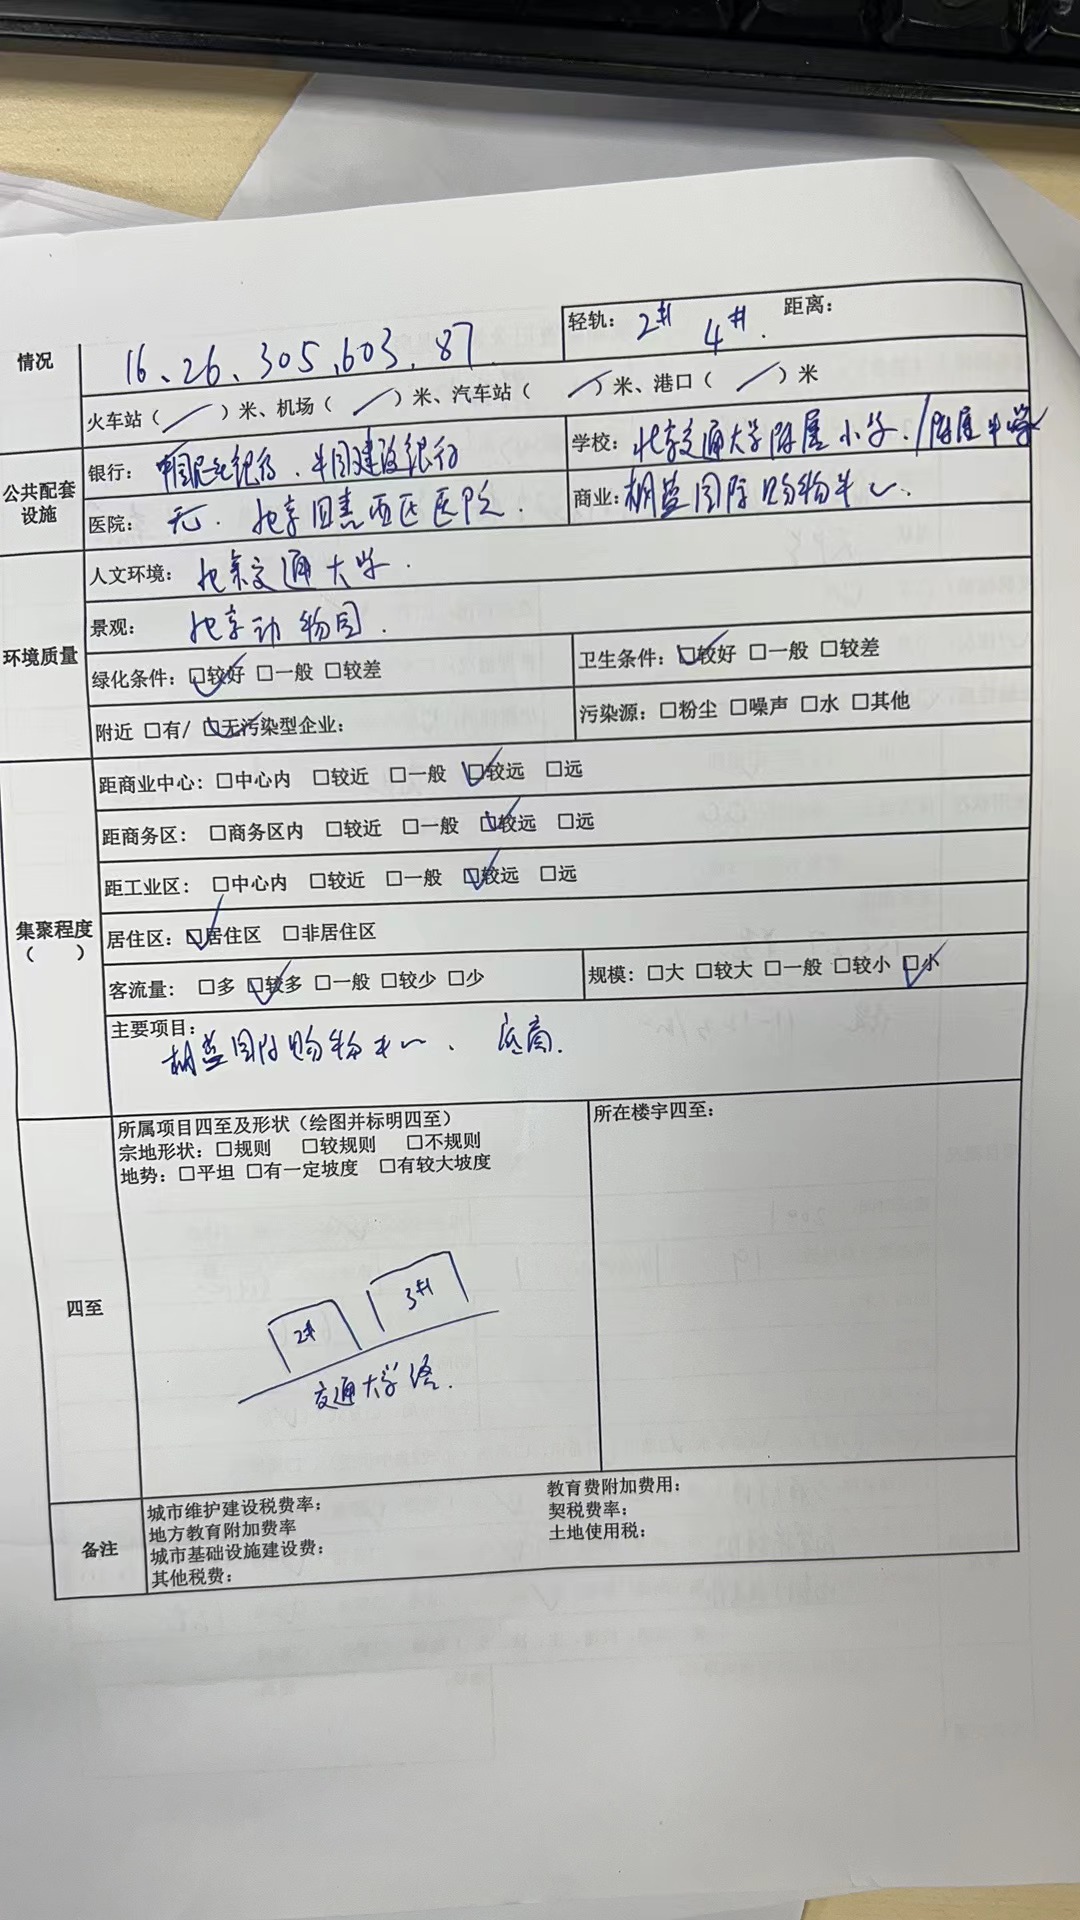 轻轨： 2# 4#. 距离：
情况 16、26、305、603、87
火车站（／）米、机场（／）米、汽车站（／）米、港口（／）米
公共配套设施 银行： 中国建设银行 学校： 北京交通大学附属小学 / 附属中学
医院： 无. 商业： 国际购物中心.
人文环境： 北京交通大学.
环境质量 景观： 北京动物园.
绿化条件：☑较好 □一般 □较差 卫生条件：☑较好 □一般 □较差
附近 □有/ ☑无污染型企业： 污染源：□粉尘 □噪声 □水 □其他
距商业中心：□中心内 □较近 □一般 ☑较远 □远
距商务区： □商务区内 □较近 □一般 ☑较远 □远
距工业区： □中心内 □较近 □一般 ☑较远 □远
集聚程度（ ） 居住区：☑居住区 □非居住区
客流量： □多 ☑较多 □一般 □较少 □少 规模：□大 □较大 □一般 □较小 ☑小
主要项目：
国际购物中心、底商.
所属项目四至及形状（绘图并标明四至） 所在楼宇四至：
宗地形状：□规则 □较规则 □不规则
地势：□平坦 □有一定坡度 □有较大坡度
四至
2# 3#
交通大学路.
城市维护建设税费率： 教育费附加费用：
地方教育附加费率 契税费率：
备注 城市基础设施建设费： 土地使用税：
其他税费：